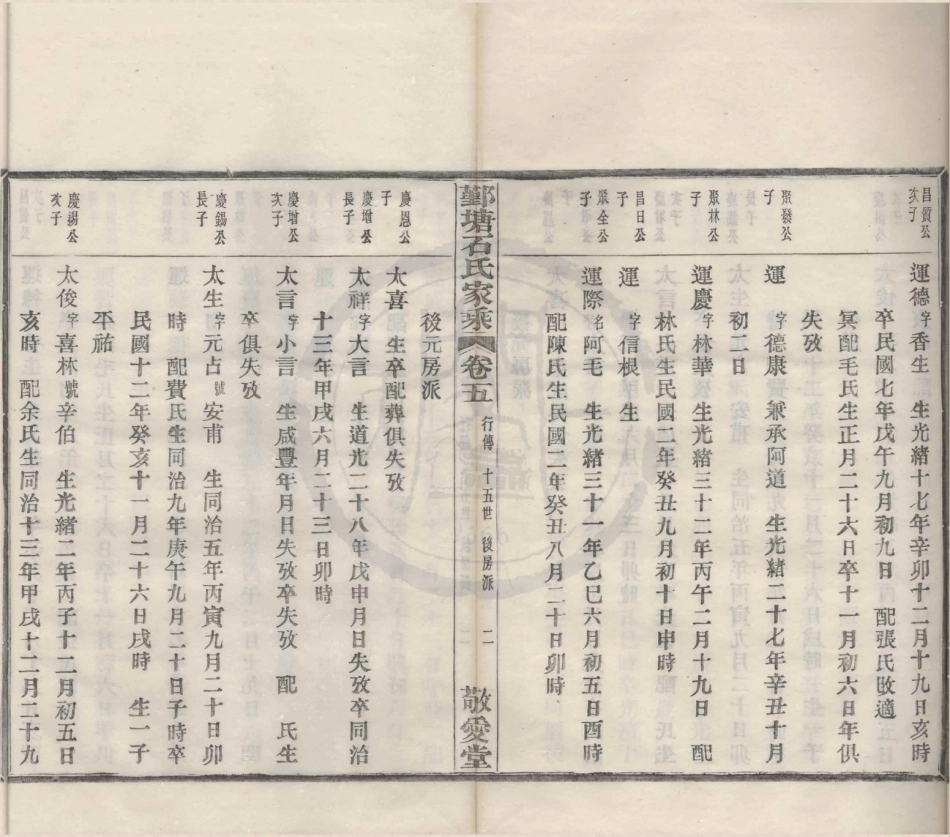 昌賀公次子
運德字香生 生光緒十七年辛卯十二月十九日亥時
卒民國七年戊午九月初九日 配張氏改適
冥配毛氏生正月二十六日卒十一月初六日年俱
失攷
聚發公子
運 字德康 兼承阿道 生光緒二十七年辛丑十月
初二日
聚林公子
運慶字林華 生光緒三十二年丙午二月十九日 配
林氏生民國二年癸丑九月初十日申時
昌日公子
運 字信根 生
聚全公子
運際名阿毛 生光緒三十一年乙巳六月初五日酉時
配陳氏生民國二年癸丑八月二十日卯時
鄞塘石氏家乘 卷五 行傳 十五世 後房派 二 敬愛堂
後元房派
慶恩公子
太喜 生卒配葬俱失攷
慶增公長子
太祥字大言 生道光二十八年戊申月日失攷卒同治
十三年甲戌六月二十三日卯時
慶增公次子
太言字小言 生咸豐年月日失攷卒失攷 配 氏生
卒俱失攷
慶錫公長子
太生字元占號安甫 生同治五年丙寅九月二十日卯
時 配費氏生同治九年庚午九月二十日子時卒
民國十二年癸亥十一月二十六日戌時 生一子
平祐
慶錫公次子
太俊字喜林號辛伯 生光緒二年丙子十二月初五日
亥時 配余氏生同治十三年甲戌十二月二十九